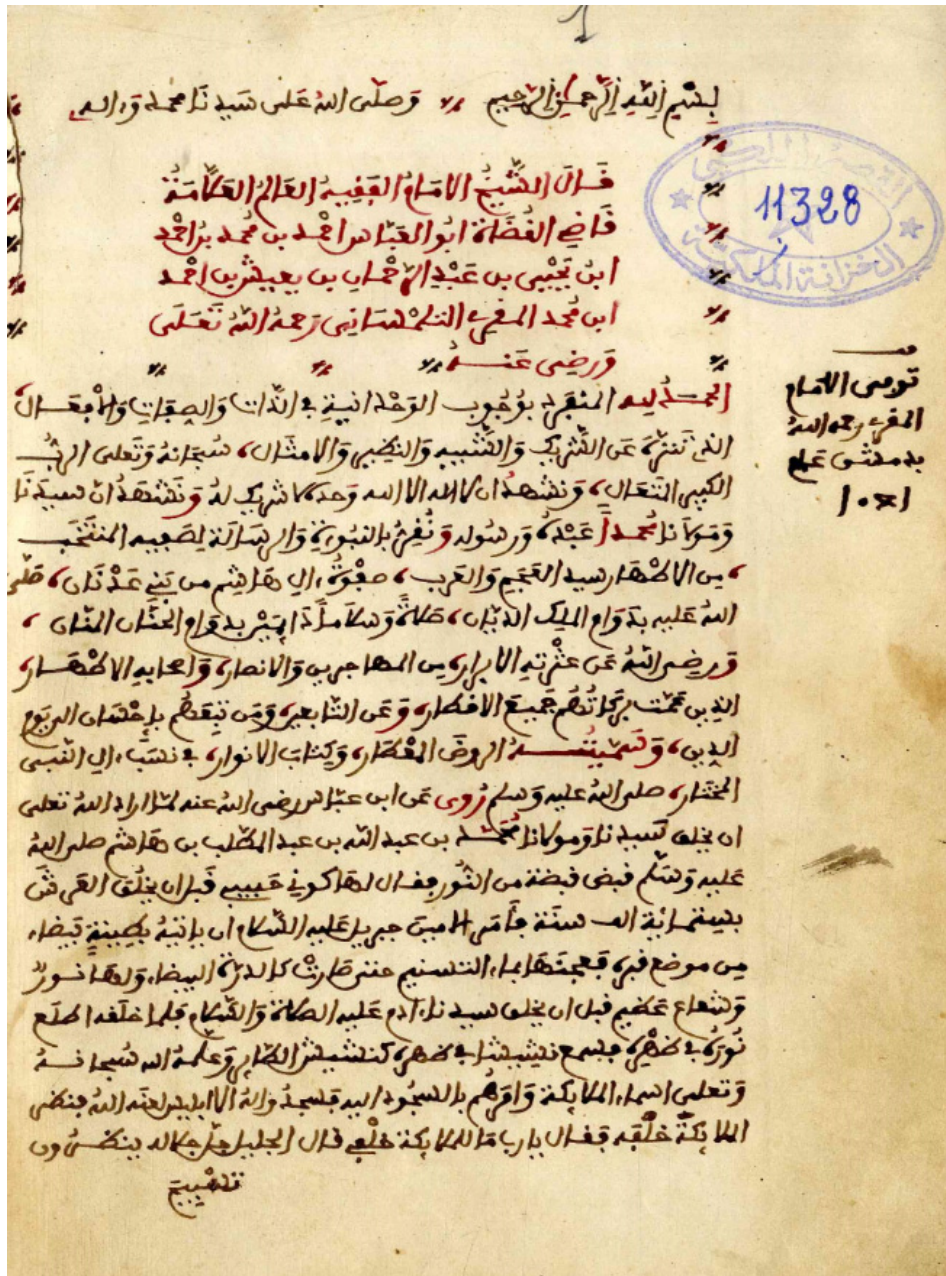 1
بسم الله الرحمن الرحيم وصلى الله على سيدنا محمد وءاله
قال الشيخ الامام الفقيه العالم العلامة
قاضي القضاة ابو العباس احمد بن محمد بن احمد
ابن يحيى بن عبد الرحمان بن يعيش بن احمد
ابن محمد المقري التلمساني رحمه الله تعلى
ورضى عنه
الحمد لله المنفرد بوجوب الوحدانية في الذات والصفات والافعال
الذي تنزه عن الشريك والشبيه والنظير والامثال، سبحانه وتعلى الرب
الكبير المتعال، ونشهد ان لا اله الا الله وحده لا شريك له ونشهد ان سيدنا
ومولانا محمدا عبده ورسوله ونقر بالنبوة والرسالة لصفيه المنتخب
من الاطهار سيد العجم والعرب، صفوة ءال هاشم من بني عدنان، صلى
الله عليه بدوام الملك الديان، صلاة وسلاما دايمين بدوام الحنان المنان،
ورضي الله عن عثرته الابرار، من المهاجرين والانصار، واصحابه الاطهار
الذين عمت بركاتهم جميع الاقطار، وعن التابعين ومن تبعهم بإحسان الى يوم
الدين، وسميته الروض المعطار، وكتاب الانوار، في نسب ءال النبي
المختار، صلى الله عليه وسلم روى عن ابن عباس رضى الله عنه لما اراد الله تعلى
ان يخلق سيدنا ومولانا محمد بن عبد الله بن عبد المطلب بن هاشم صلى الله
عليه وسلم قبض قبضة من النور فقال لها كوني حبيبي قبل ان يخلق العرش
بستمائة الف سنة فأمر الامين جبريل عليه السلام ان ياتيه بطينة بيضاء
من موضع قبره فعجنها بماء التسنيم حتى صارت كالدرة البيضاء ولها نور
وشعاع عظيم قبل ان يخلق سيدنا ءادم عليه الصلاة والسلام فلما خلقه اطلع
نوره في ظهره فسمع نشيشا في ظهره كنشيش الطاير وعلمه الله سبحانه
وتعلى اسماء الملايكة وامرهم بالسجود اليه فسجدوا له الا ابليس لعنه الله فنظر
الملايكة خلفه فقال يا رب ما للملايكة خلفي قال الجليل جل جلاله ينظرون
تسبيح
توفى الامام
المقري رحمه الله
بدمشق عام
1041
11328
الخزانة الملكية